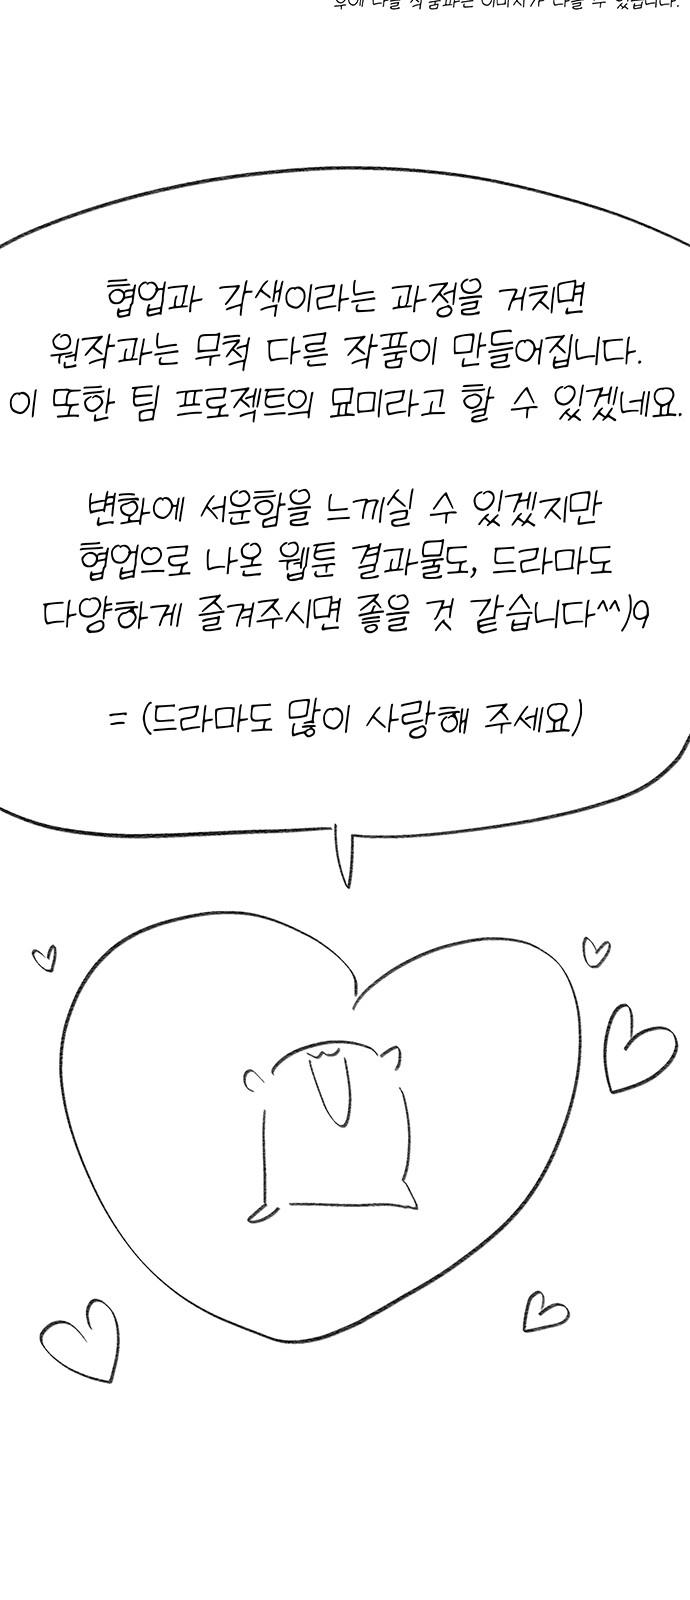 협업과 각색이라는 과정을 거치면
원작과는 무척 다른 작품이 만들어집니다.
이 또한 팀 프로젝트의 묘미라고 할 수 있겠네요.
변화에 서운함을 느끼실 수 있겠지만
협업으로 나온 웹툰 결과물도, 드라마도
다양하게 즐겨주시면 좋을 것 같습니다^^)9
= (드라마도 많이 사랑해 주세요)